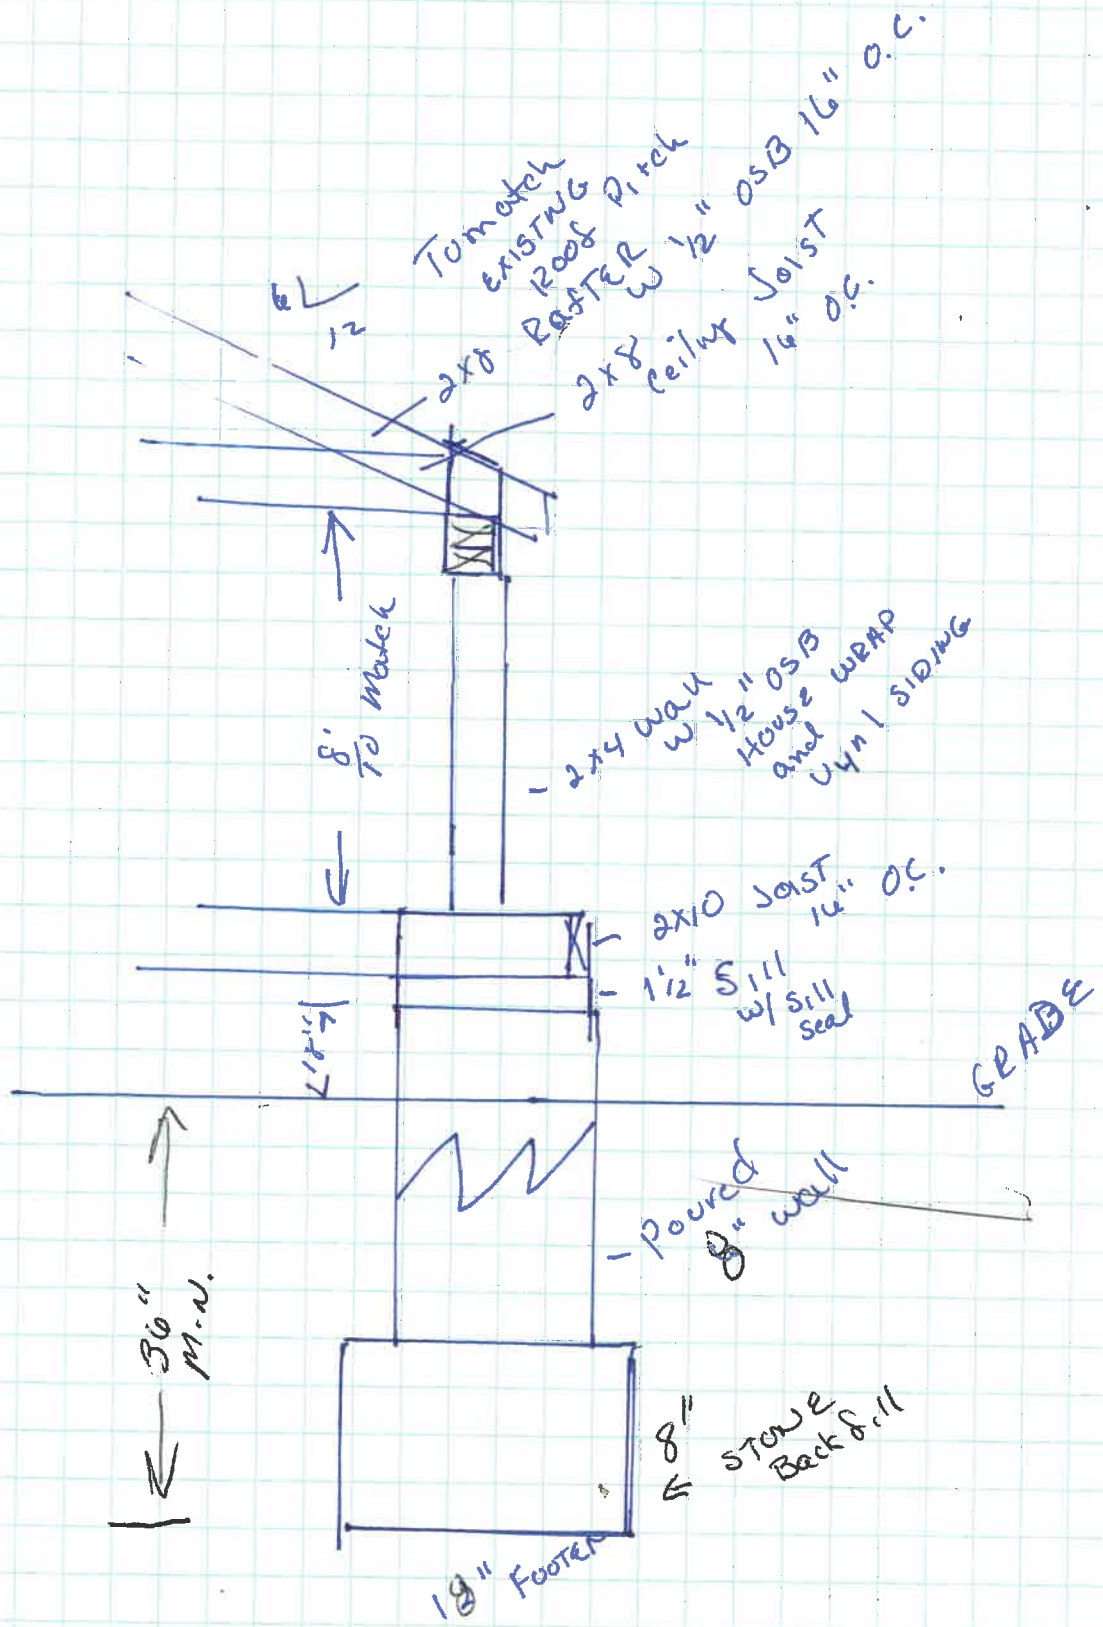 To match
EXISTING
ROOF Pitch
2x8 RafTER W 1/2" OSB 16" O.C.
2x8 Ceiling Joist
16" O.C.
6
12
8'
TO Match
- 2x4 wall
W 1/2" OSB
House WRAP
and
vynl SIDING
- 2x10 Joist
16" O.C.
- 1 1/2" Sill
w/ Sill
Seal
18"
GRADE
- Poured
8" wall
36"
MIN.
8"
STONE
Backfill
18" FOOTER